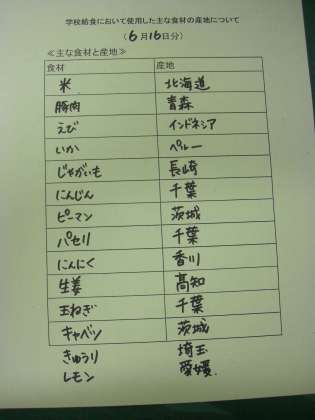 学校給食において使用した主な食材の産地について
(6月16日分)
≪主な食材と産地≫
食材 産地
米 北海道
豚肉 青森
えび インドネシア
いか ペルー
じゃがいも 長崎
にんじん 千葉
ピーマン 茨城
パセリ 千葉
にんにく 香川
生姜 高知
玉ねぎ 千葉
キャベツ 茨城
きゅうり 埼玉
レモン 愛媛